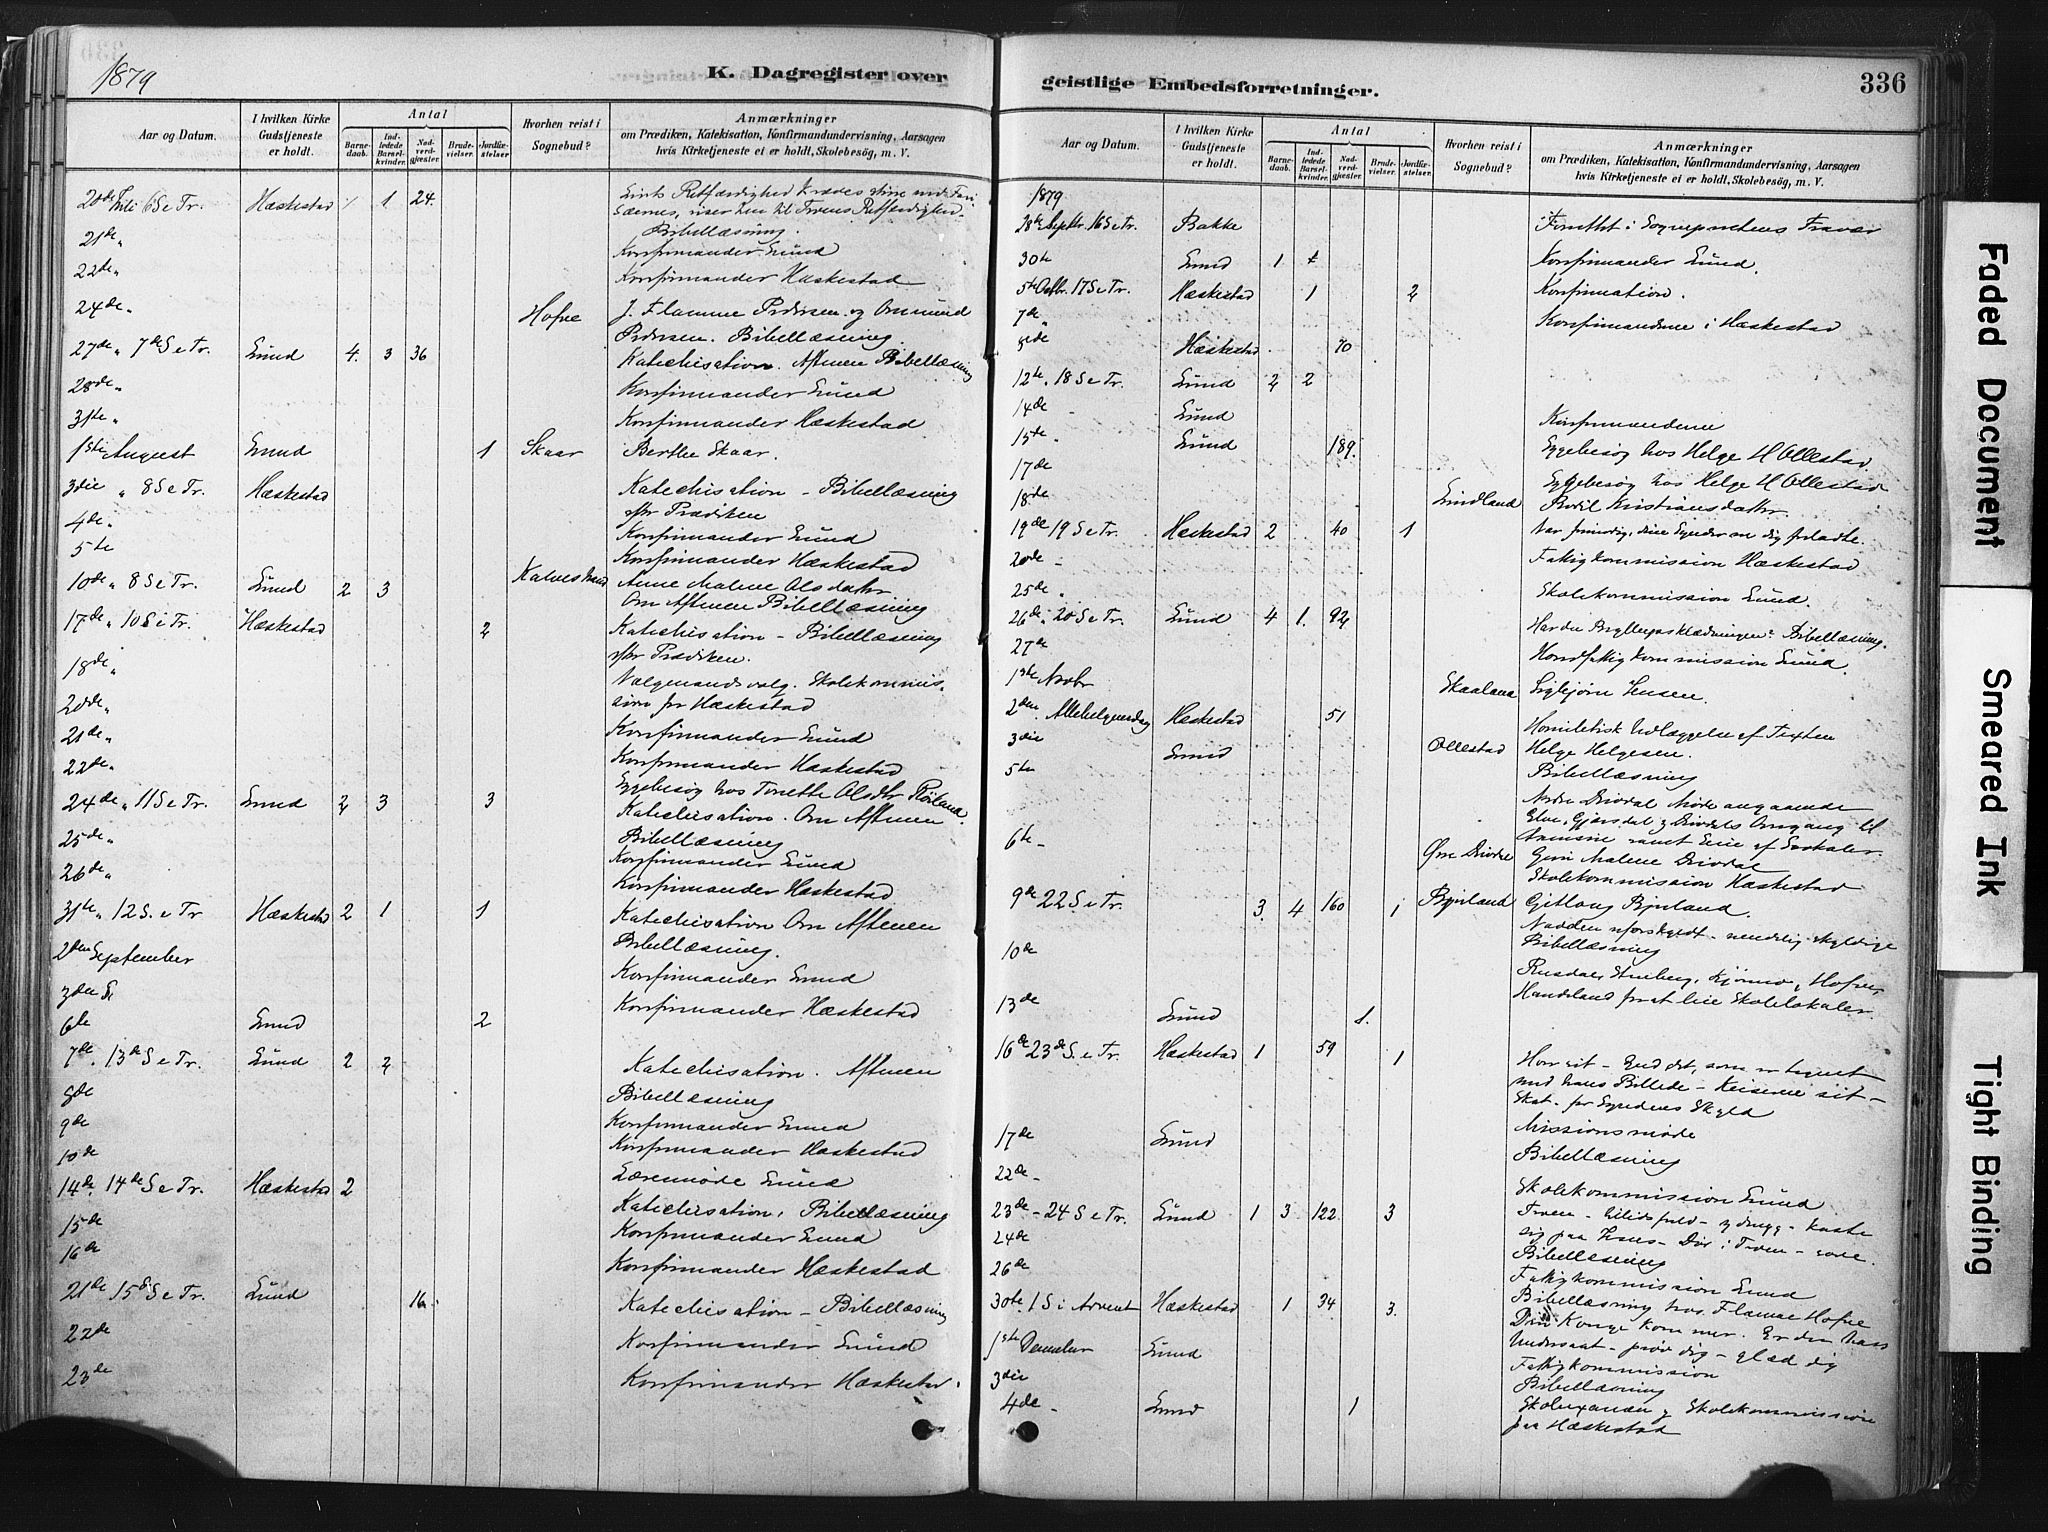 1879
K. Dagregister over
Aar og Datum.
I hvilken Kirke Gudstjeneste er holdt.
Antal
Barnedaab.
Indledede Barselkvinder.
Nadverdgjester
Brudevielser.
Jordfæstelser
Hvorhen reist i Sognebud?
Anmærkninger
om Prædiken, Katekisation, Konfirmandundervisning, Aarsagen
hvis Kirketjeneste ei er holdt, Skolebesøg, m. V.
20de Juli 6 S e Tr. Hæskestad 1 24. Retfærdighed kræves
Bibellæsning.
21de " Konfirmander Lund
22de " Konfirmander Hæskestad
24de " Hofve J. Flamme Pedersen og Ommund
Pedersen. Bibellæsning.
27de " 7de S e Tr. Lund 4. 3 36 Katechisation. Aftenen Bibellæsning
28de " Konfirmander Lund
31te " Konfirmander Hæskestad
1ste August Lund 1 Skaar Berthe Skaar.
3die " 8 S e Tr. Hæskestad Katechisation - Bibellæsning
efter Prædiken
4de " Konfirmander Lund
5te Konfirmander Hæskestad
10de " 8 S e Tr. Lund 2 3 Anne Malene Olsdatter
Om Aftenen Bibellæsning
17de " 10 S e Tr. Hæskestad 2 Katechisation - Bibellæsning
efter Prædiken.
18de " Valgmandsvalg. Skolekommis-
sion for Hæskestad
20de "
21de " Konfirmander Lund
22de " Konfirmander Hæskestad
Sygebesøg hos Tonette Olsdtr
24de " 11 S e Tr. Lund 2 3 3 Katechisation. Om Aftenen
Bibellæsning
25de " Konfirmander Lund
26de " Konfirmander Hæskestad
31te " 12 S. e Tr Hæskestad 2 1 1 Katechisation Om Aftenen
Bibellæsning.
2den September Konfirmander Lund
3den Konfirmander Hæskestad
6te Lund 2
7de. 13de S e Tr. Lund 2 2 Katechisation. Aftenen
Bibellæsning
8de Konfirmander Lund
9de Konfirmander Hæskestad
10de Læremøde Lund
14de. 14de S e Tr. Hæskestad 2 Katechisation, Bibellæsning
15de Konfirmander Lund
16de Konfirmander Hæskestad
21de 15de S e Tr. Lund 16. Katechisation - Bibellæsning
22de Konfirmander Lund
23de Konfirmander Hæskestad.
geistlige Embedsforretninger.
336
Aar og Datum.
I hvilken Kirke Gudstjeneste er holdt.
Antal
Barnedaab.
Indledede Barselkvinder.
Nadverdgjester
Brudevielser.
Jordfæstelser.
Hvorhen reist i Sognebud?
Anmærkninger
om Prædiken, Katekisation, Konfirmandundervisning, Aarsagen
hvis Kirketjeneste ei er holdt, Skolebesøg, m. V.
1879
28de Septbr. 16 S e Tr. Bakke Forrettet i Sogneprestens Fravær
30te Lund 1 Konfirmander Lund.
5te Octbr. 17 S e Tr. Hæskestad 1 2 Konfirmation.
7de Konfirmanderne i Hæskestad
8de Hæskestad 70
12te. 18 S e Tr. Lund 2 2
14de Lund Konfirmanderne
15te. Lund 189.
17de Sygebesøg hos Helge H Ollestad.
18de Sygebesøg hos Helge H Ollestad
Bodil Kristiansdatter
19de 19 S e Tr. Hæskestad 2 40 1 Vær frimodig, dine Synder ere dig forladte.
20de - Fattigkommission Hæskestad
25de " Skolekommission Lund.
26de " 20 S e Tr. Lund 4 1. 92 Har du Bryllupsklædningen? Bibellæsning.
27de fattigkommission Lund.
1ste Novbr Skaaland Sigbjørn Jensen.
2den Allehelgensdag Hæskestad 51 Homiletisk Udlæggelse af Texten
3die Lund Ollestad Helge Helgesen.
Bibellæsning
5te Møde angaaende
Gjersdal Omgang til
samt Leie af Lokaler.
6te - Malene
Skolekommission Hæskestad
9de 22 S e Tr. 3. 4 160 1 Gitlaug
10de Bibellæsning
Hofve,
for at leie Skolelokaler.
13de Lund 1.
16de 23de S. e Tr. Hæskestad 1 59 1 Gud det, som er tegnet
med hans Billede - Keiseren sit -
Skat - for Syndens Skyld
17de Lund Missionsmøde
Bibellæsning
22de - Skolekommission Lund
23de - 24 S e Tr. Lund 1 3 122. 3 Troen - kaste
sig paa Jesus - Dør i Troen - sove.
24de Bibellæsning
26de Fattigkommission Lund
Bibellæsning hos Flamme Hofve
30te. 1 S i Advent Hæskestad 1 34 3. Din Konge kommer. Er du hans
Undersaat - prøv dig - glæd dig
1ste December Lund Fattigkommission
3die Bibellæsning
4de - Lund 1 Skolekommission
paa Hæskestad
Faded Document
Smeared Ink
Tight Binding